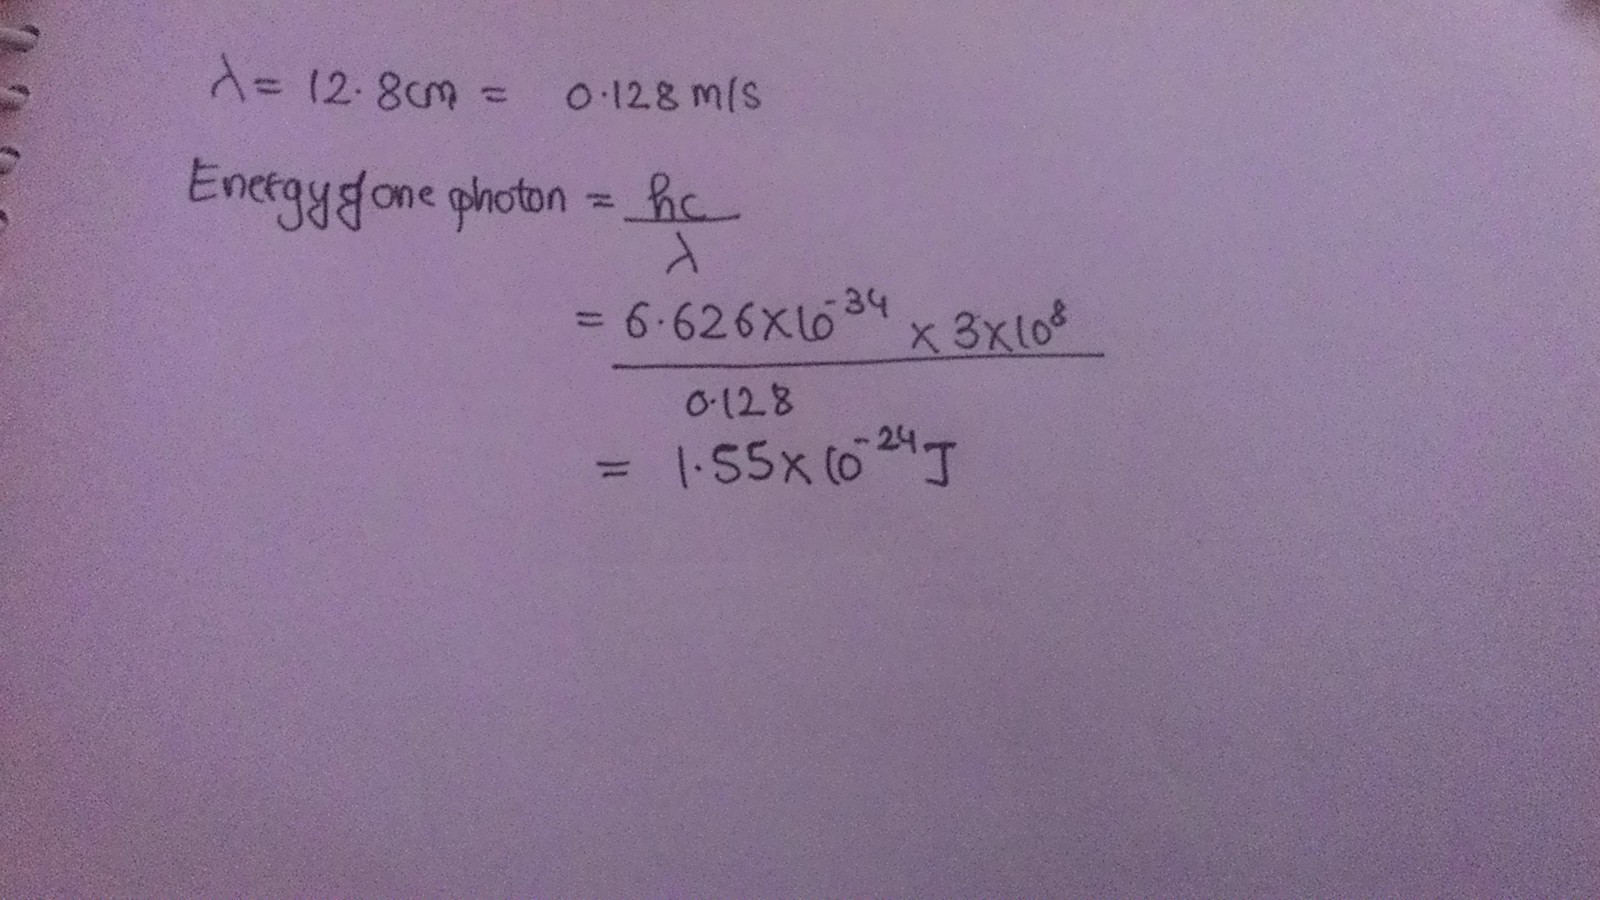 λ = 12.8cm = 0.128 m/s
Energy of one photon = hc
λ
= 6.626×10⁻³⁴ × 3×10⁸
0.128
= 1.55×10⁻²⁴J